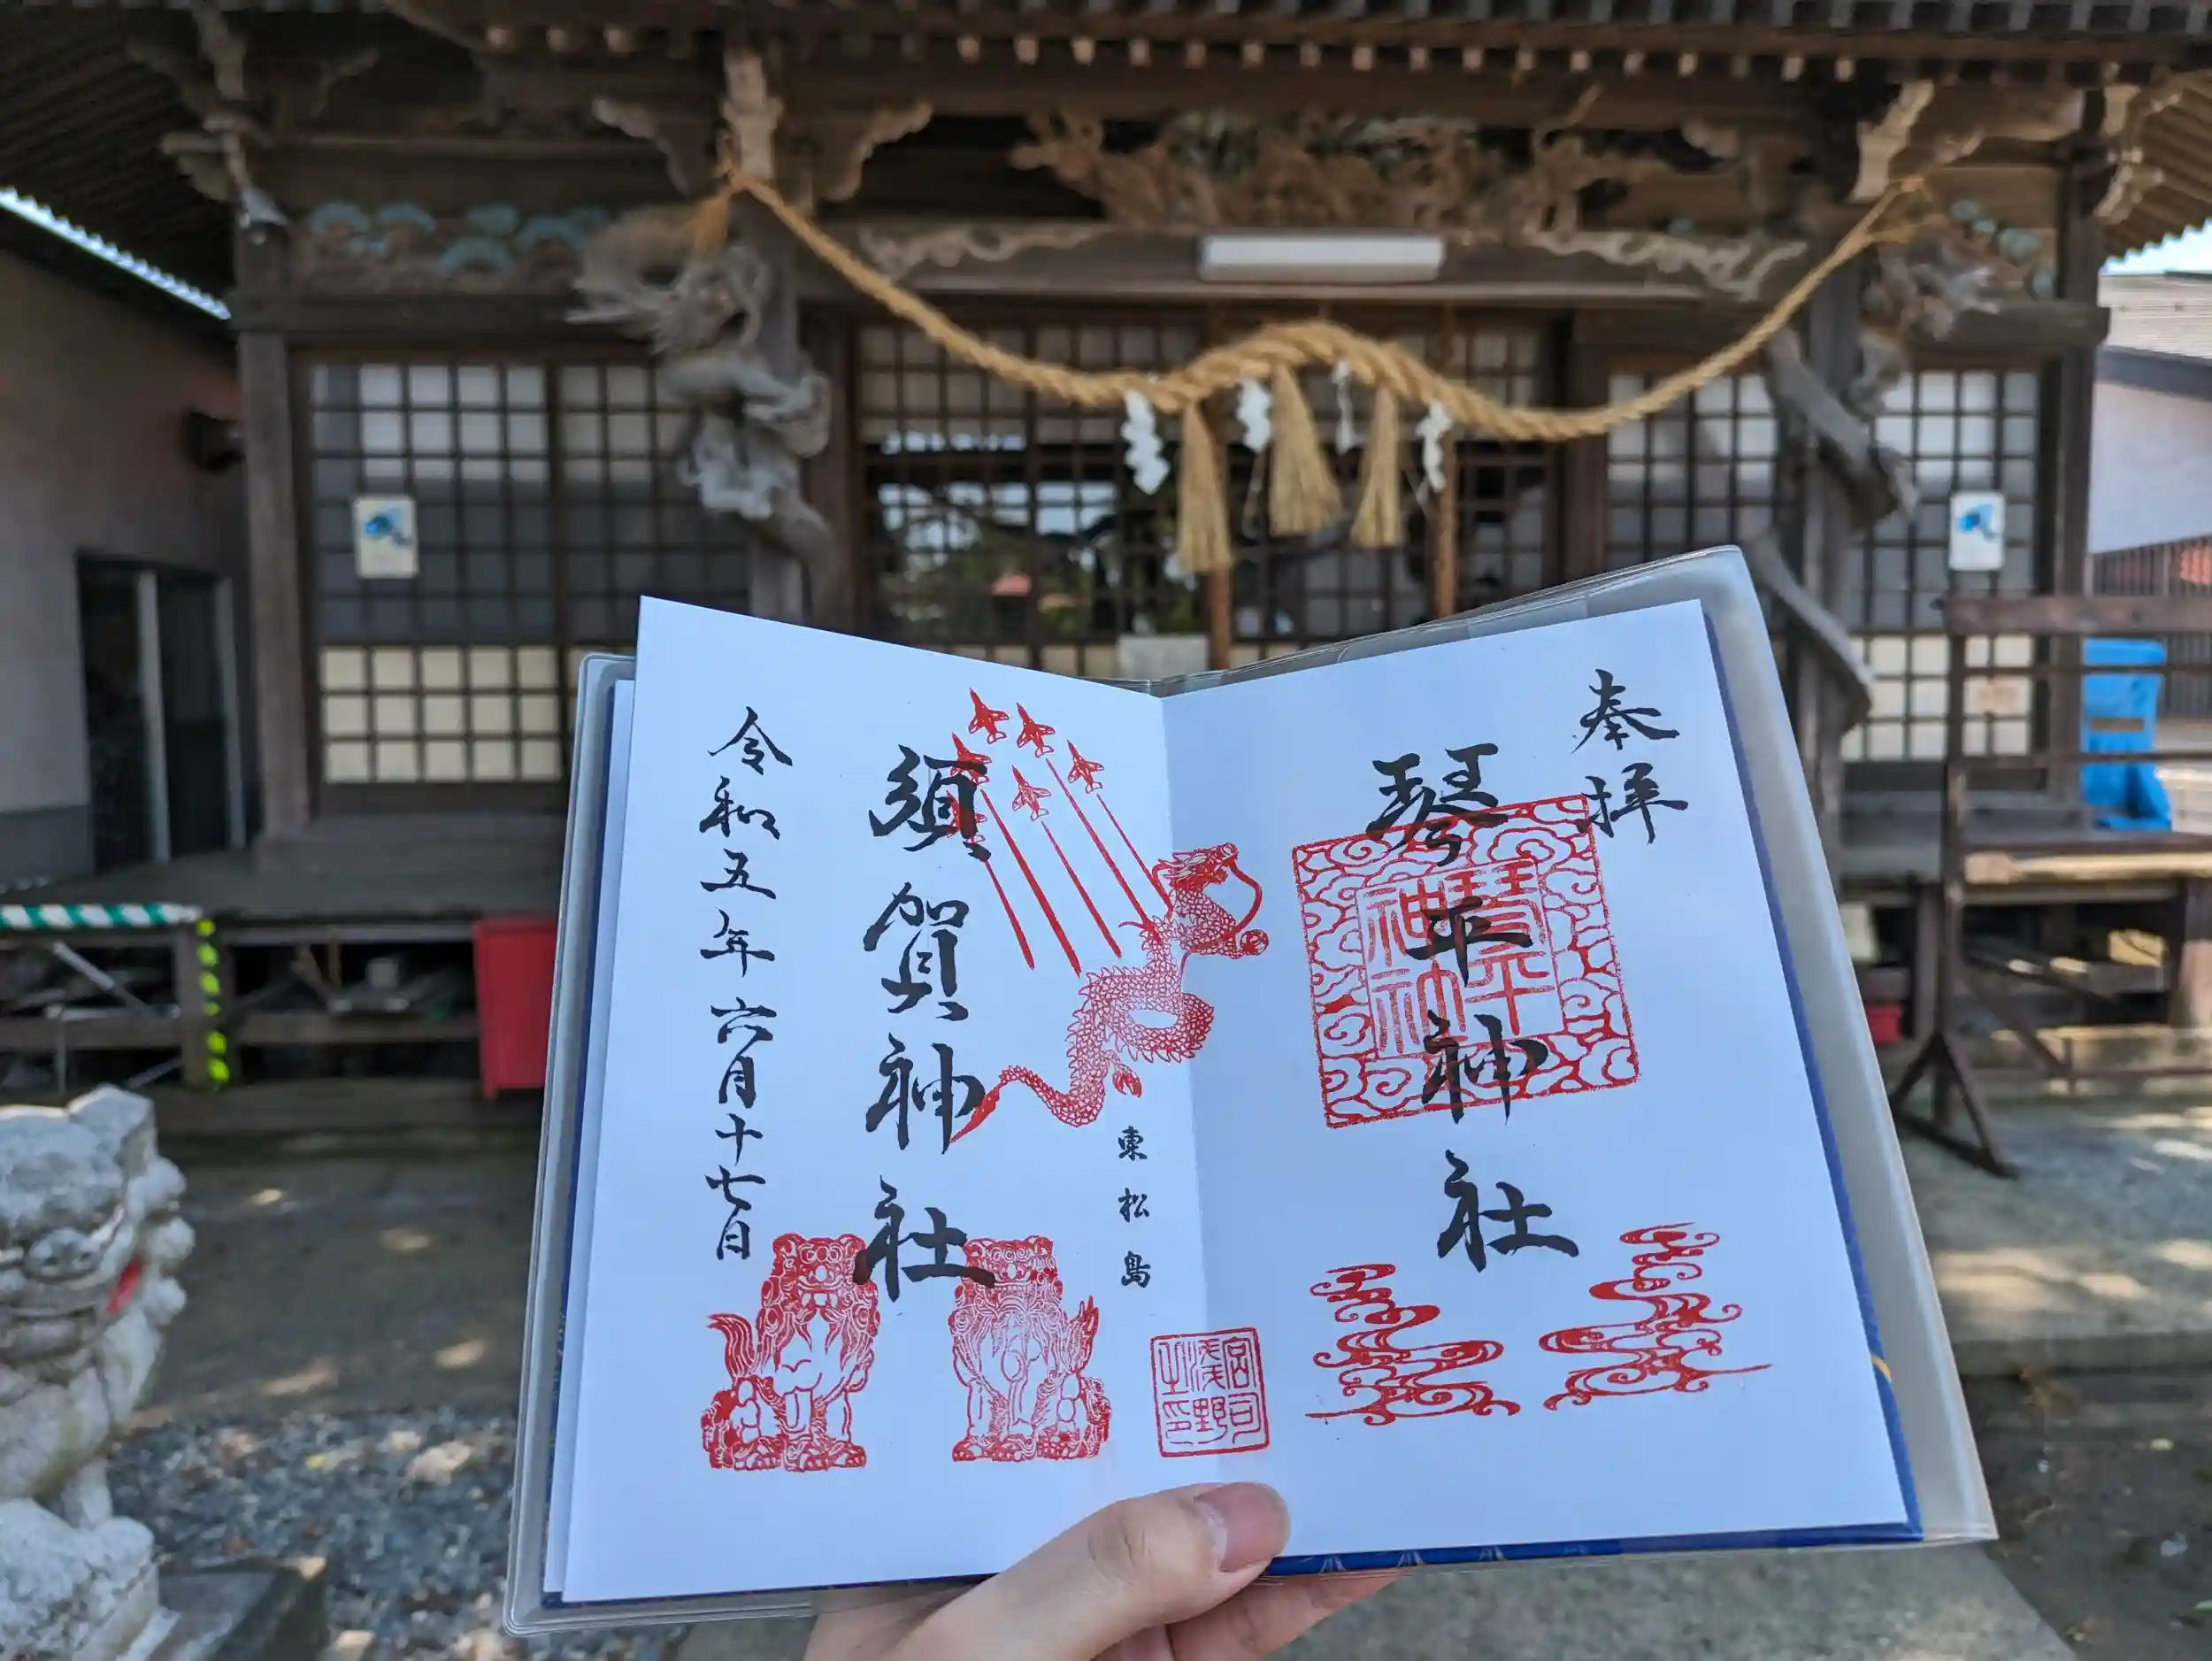 奉拝
琴平神社
琴平神社
東松島
須賀神社
令和五年六月十七日
宮司浅野之印